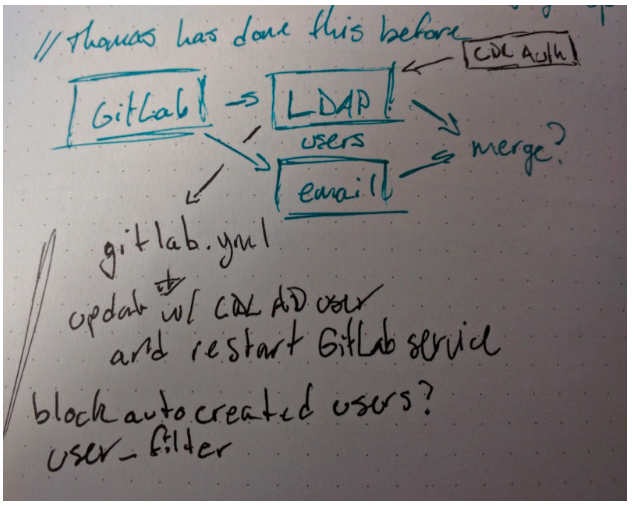 // Thomas has done this before
CDL Auth
GitLab
LDAP
users
email
merge?
gitlab.yml
update w/ CDL AD user
and restart GitLab service
block auto created users?
user_filter